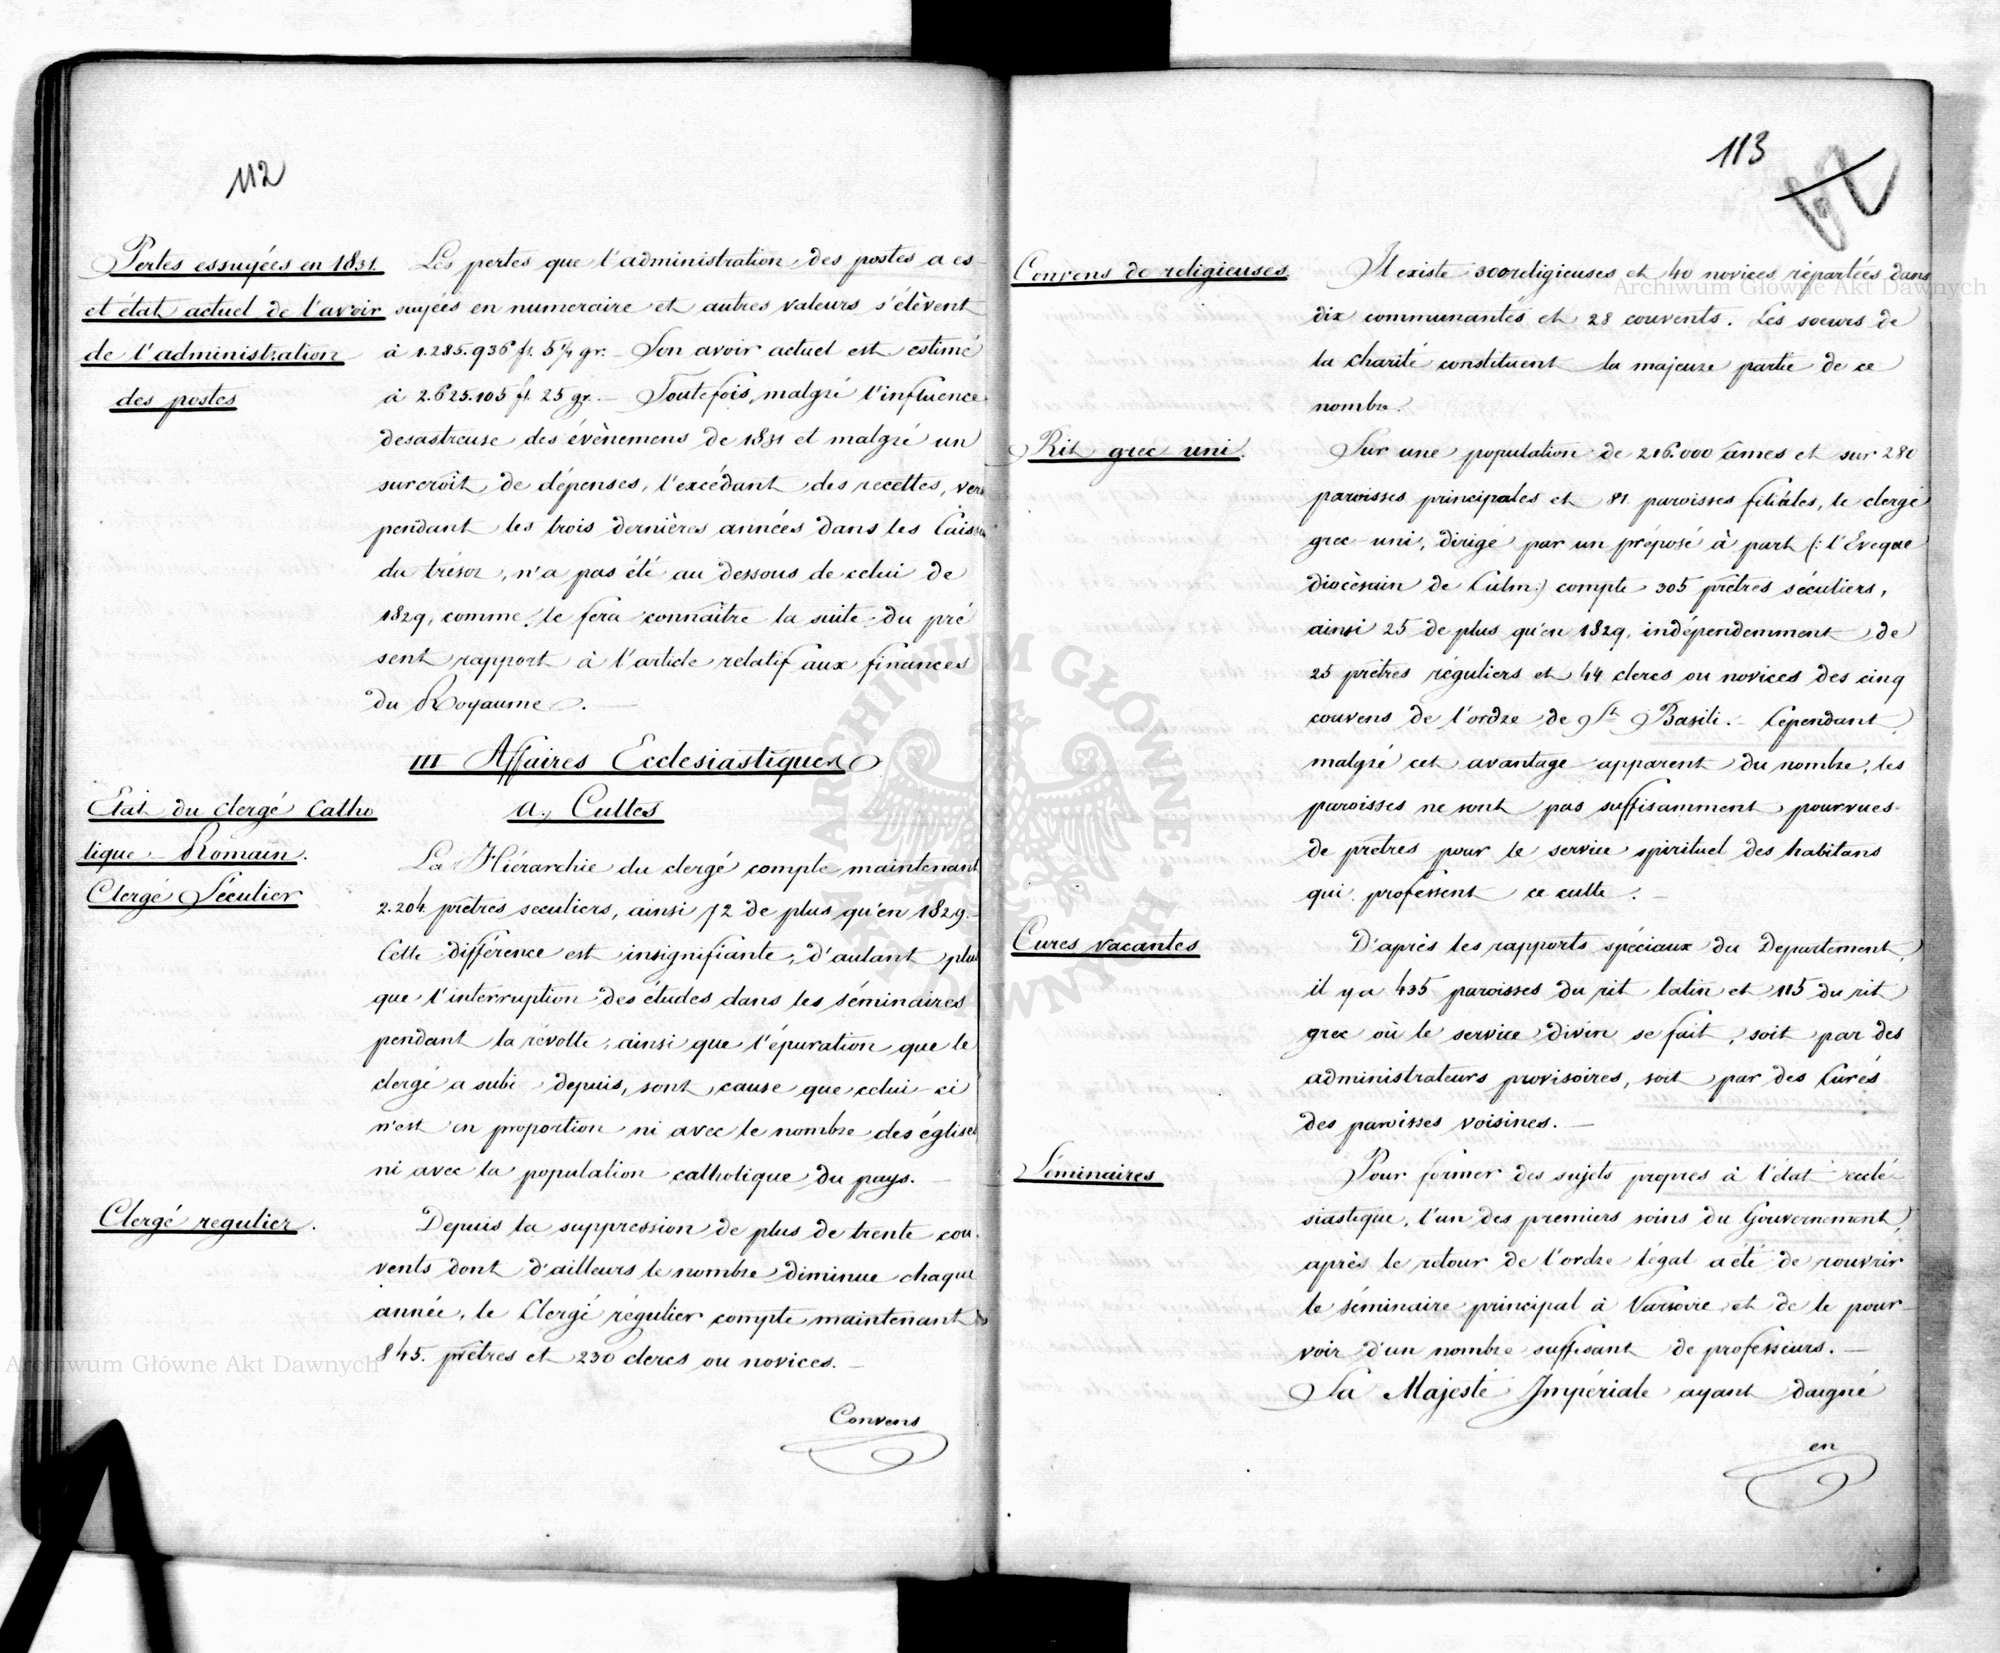 112
Pertes essuyées en 1831.
et état actuel de l'avoir
de l'administration
des postes
Les pertes que l'administration des postes a es-
suyées en numeraire et autres valeurs s'élèvent
à 1.285.936 fl. 5 ¼ gr. — Son avoir actuel est estimé
à 2.625.105 fl. 25 gr. — Toutefois, malgré l'influence
desastreuse des évènemens de 1831 et malgré un
surcroît de dépenses, l'excédant des recettes, versé
pendant les trois dernières années dans les Caisses
du trésor, n'a pas été au dessous de celui de
1829, comme le fera connaître la suite du pré
sent rapport à l'article relatif aux finances
du Royaume. —
III Affaires Ecclesiastiques
a., Cultes
Etat du clergé Catho
lique-Romain.
Clergé Séculier
La Hiérarchie du clergé compte maintenant
2.204 prêtres seculiers, ainsi 72 de plus qu'en 1829. —
Cette différence est insignifiante, d'autant plus
que l'interruption des études dans les séminaires
pendant la révolte, ainsi que l'épuration que le
clergé a subi depuis, sont cause que celui-ci
n'est en proportion ni avec le nombre des églises
ni avec la population catholique du pays. —
Clergé regulier.
Depuis la suppression de plus de trente cou-
vents dont d'ailleurs le nombre diminue chaque
année, le Clergé régulier compte maintenant
845. prêtres et 230 clercs ou novices. —
Convens
113
Convens de religieuses
Il existe 300 religieuses et 40 novices répartées dans
dix communantés et 28 couvents. Les soeurs de
la charité constituent la majeure partie de ce
nombre.
Rit grec uni.
Sur une population de 216.000 âmes et sur 280
paroisses principales et 81 paroisses filiales, le clergé
grec-uni, dirigé par un préposé à part (: l'Eveque
diocèsain de Culm:) compte 305 prêtres séculiers,
ainsi 25 de plus qu'en 1829, indépendemment de
25 prêtres réguliers et 44 clercs ou novices des cinq
couvens de l'ordre de St Basili. — Cependant,
malgré cet avantage apparent du nombre, les
paroisses ne sont pas suffisamment pourvues
de prêtres pour le service spirituel des habitans
qui professent ce culte. —
Cures vacantes
D'après les rapports spéciaux du Departement,
il y a 435 paroisses du rit latin et 115 du rit
grec où le service divin se fait, soit par des
administrateurs provisoires, soit par des Curés
des paroisses voisines. —
Séminaires
Pour former des sujets propres à l'état ecclé-
siastique, l'un des premiers soins du Gouvernement,
après le retour de l'ordre légal a été de rouvrir
le séminaire principal à Varsovie et de le pour-
voir d'un nombre suffisant de professeurs. —
Sa Majesté Impériale ayant daigné
en
Archiwum Główne Akt Dawnych
Archiwum Główne Akt Dawnych
ARCHIWUM GŁÓWNE AKT DAWNYCH